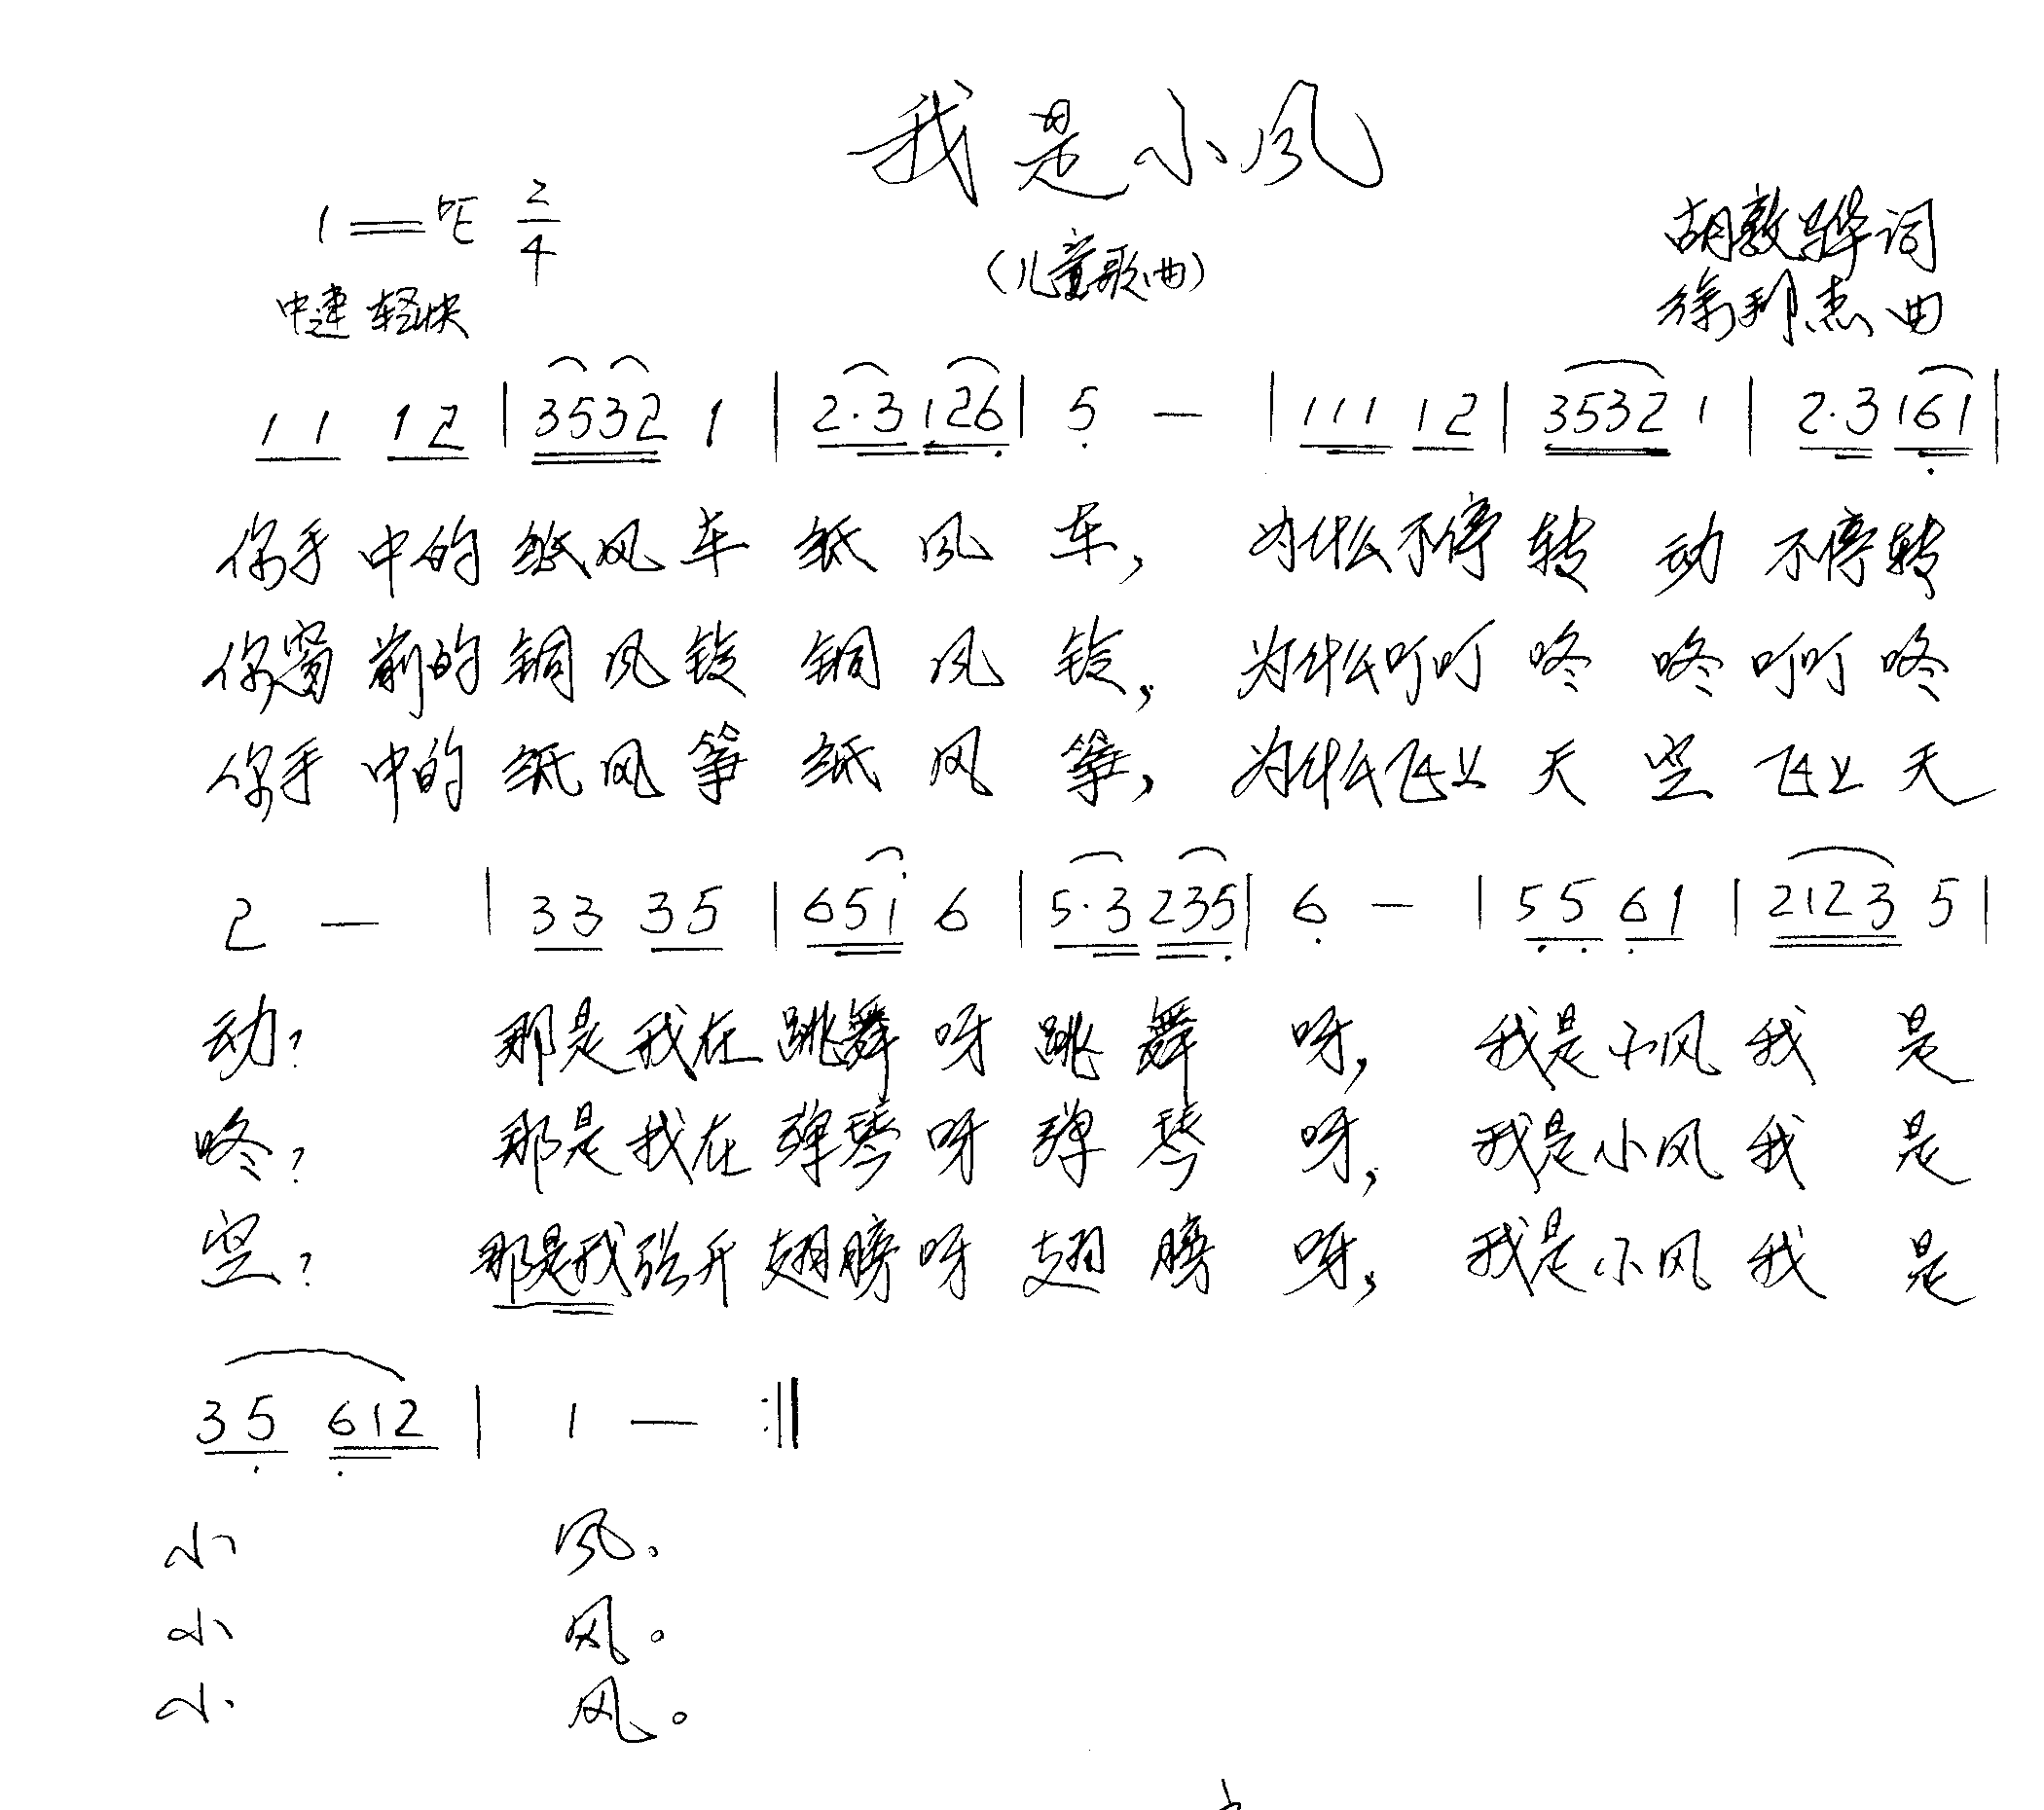 我是小风
1=♭E 2/4
(儿童歌曲)
胡敦骅词
中速 轻快
徐邦杰曲
11 12 | 3532 1 | 2·3 126 | 5 — | 111 12 | 3532 1 | 2·3 161 |
你手中的纸风车纸风车，为什么不停转动不停转
你窗前的铜风铃铜风铃，为什么叮叮咚咚叮叮咚
你手中的纸风筝纸风筝，为什么飞上天空飞上天
2 — | 33 35 | 651 6 | 5·3 235 | 6 — | 55 61 | 2123 5 |
动？那是我在跳舞呀跳舞呀，我是小风我是
咚？那是我在弹琴呀弹琴呀，我是小风我是
空？那是我张开翅膀呀翅膀呀，我是小风我是
35 612 | 1 — :||
小风。
小风。
小风。